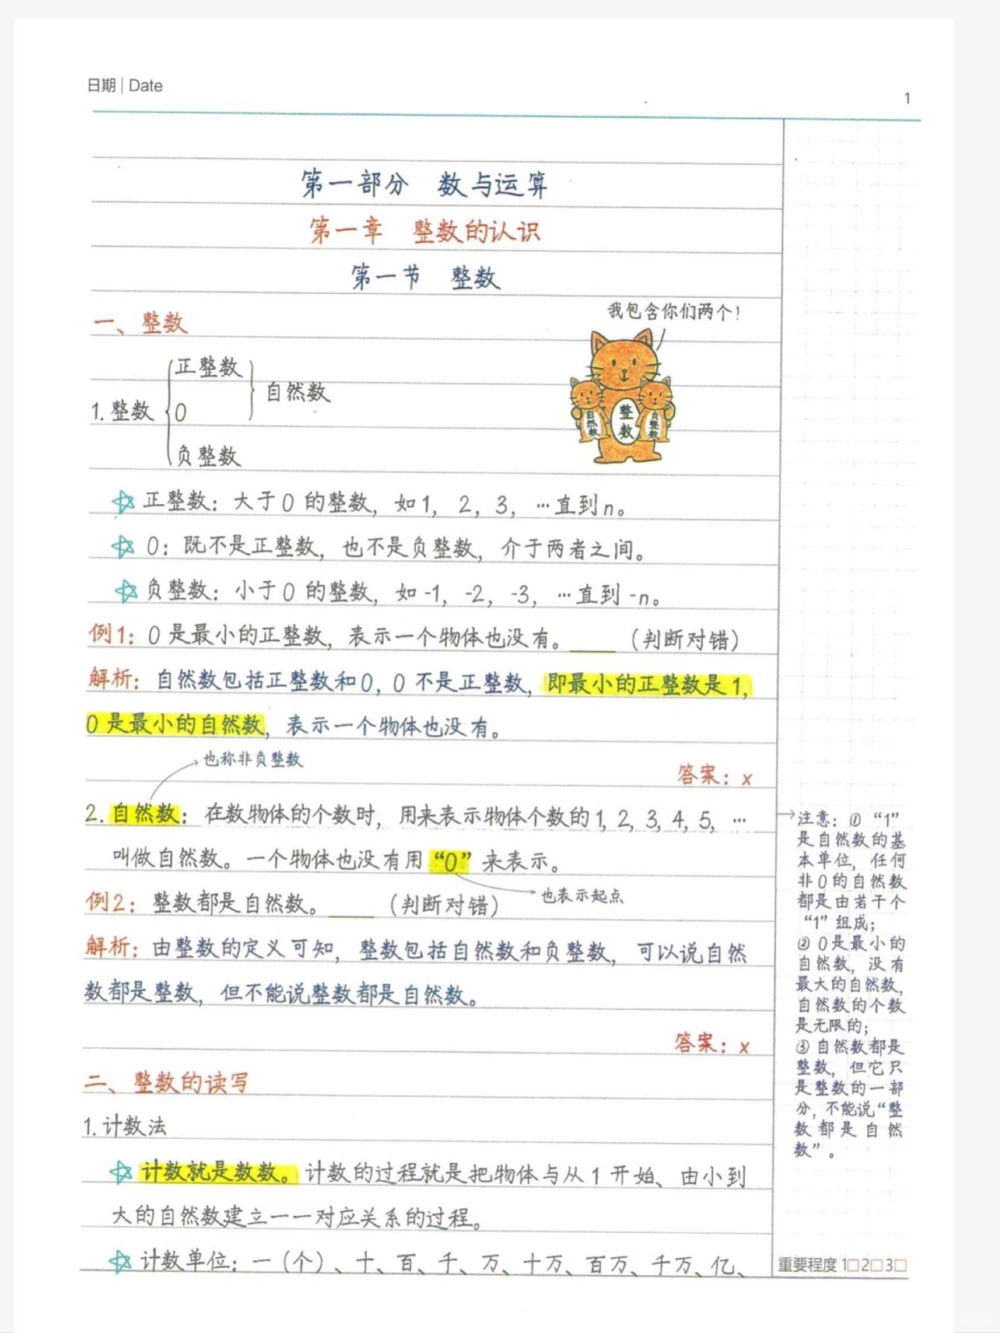 日期 | Date
1
第一部分 数与运算
第一章 整数的认识
第一节 整数
一、整数
我包含你们两个！
1.整数
正整数
0
负整数
自然数
自然数
整数
负整数
正整数：大于0的整数，如1，2，3，…直到n。
0：既不是正整数，也不是负整数，介于两者之间。
负整数：小于0的整数，如-1，-2，-3，…直到-n。
例1：0是最小的正整数，表示一个物体也没有。____（判断对错）
解析：自然数包括正整数和0，0不是正整数，即最小的正整数是1，
0是最小的自然数，表示一个物体也没有。
也称非负整数
答案：x
2.自然数：在数物体的个数时，用来表示物体个数的1，2，3，4，5，…
叫做自然数。一个物体也没有用“0”来表示。
也表示起点
例2：整数都是自然数。____（判断对错）
解析：由整数的定义可知，整数包括自然数和负整数，可以说自然
数都是整数，但不能说整数都是自然数。
答案：x
二、整数的读写
1.计数法
计数就是数数。计数的过程就是把物体与从1开始、由小到
大的自然数建立一一对应关系的过程。
计数单位：一（个）、十、百、千、万、十万、百万、千万、亿、
注意：①“1”
是自然数的基
本单位，任何
非0的自然数
都是由若干个
“1”组成；
②0是最小的
自然数，没有
最大的自然数，
自然数的个数
是无限的；
③自然数都是
整数，但它只
是整数的一部
分，不能说“整
数都是自然
数”。
重要程度 1□2□3□